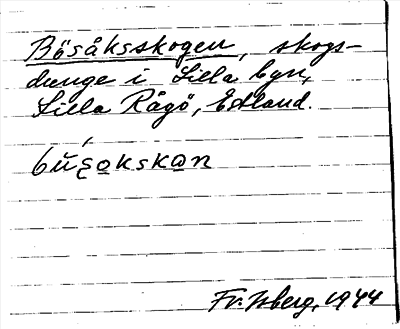 Bösåksskogen, skogs-
dunge i Lilla byn,
Lilla Rågö, Estland.
bu̇́șo̱kska̱n
Fr. Isberg, 1944